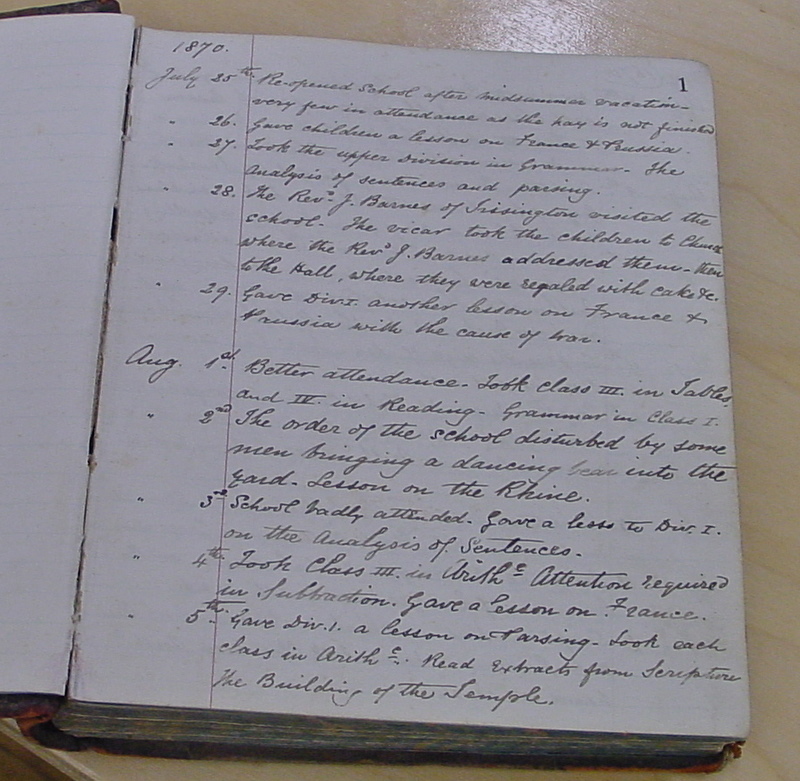 1870.
1
July 25th Re-opened School after midsummer vacation-
very few in attendance as the hay is not finished
" 26. Gave children a lesson on France & Prussia.
" 27. Took the upper Division in Grammar. The
Analysis of sentences and parsing.
" 28. The Revd. J. Barnes of Irsington visited the
school. The vicar took the children to Church
where the Revd J. Barnes addressed them - then
to the Hall, where they were regaled with cake &c.
" 29. Gave Div. I. another lesson on France &
Prussia with the cause of war.
Aug. 1st. Better attendance. Took Class III. in Tables
and IV. in Reading - Grammar in Class I.
" 2nd The order of the school disturbed by some
men bringing a dancing bear into the
yard. Lesson on the Rhine.
" 3rd School badly attended. Gave a less to Div. I.
on the Analysis of Sentences.
" 4th. Took Class III. in Arithc Attention required
in Subtraction. Gave a lesson on France.
" 5th. Gave Div. I. a lesson on Parsing. Took each
class in Arithc. Read Extracts from Scripture
The Building of the Temple.